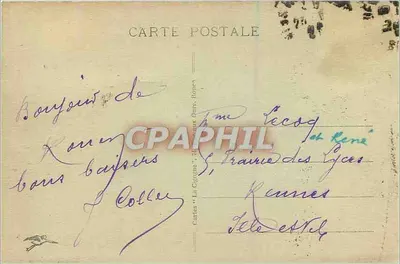 CARTE POSTALE
Bonjour de
Rouen
bons baisers
J Collen
Mme Lecoq
et René
5, Prairie des Lycées
Rennes
Ille et Vil
CPAPHIL
Cartes "La Cigogne"